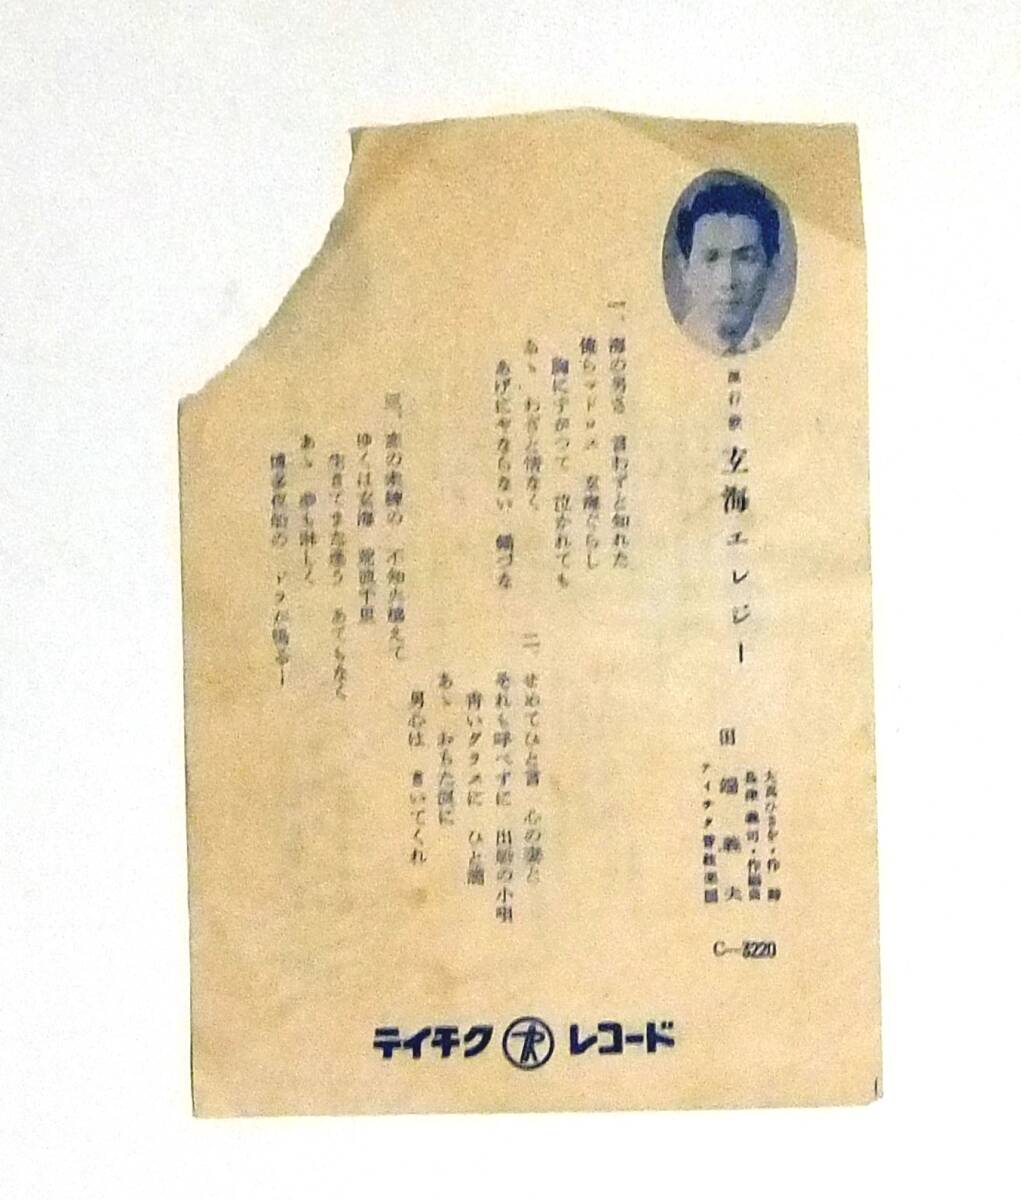 流行歌 玄海エレジー
大高ひさを・作詩
長津義司・作編曲
田端義夫
テイチク管絃楽団
C—3220
一、海の男さ 言わずと知れた
俺らマドロス 玄海ぐらし
胸にすがつて 泣かれても
あゝ わざと情なく
あげにやならない 錨づな
二、せめてひと言 心の妻と
それも呼べずに 出船の小唄
青いグラスに ひと滴
あゝ おちた涙に
男心は きいてくれ
三、恋の未練の 不知火燃えて
ゆくは玄海 荒波千里
生きてまた逢う あてもなく
あゝ 夢も淋しく
博多夜船の ドラが鳴るー
テイチク レコード